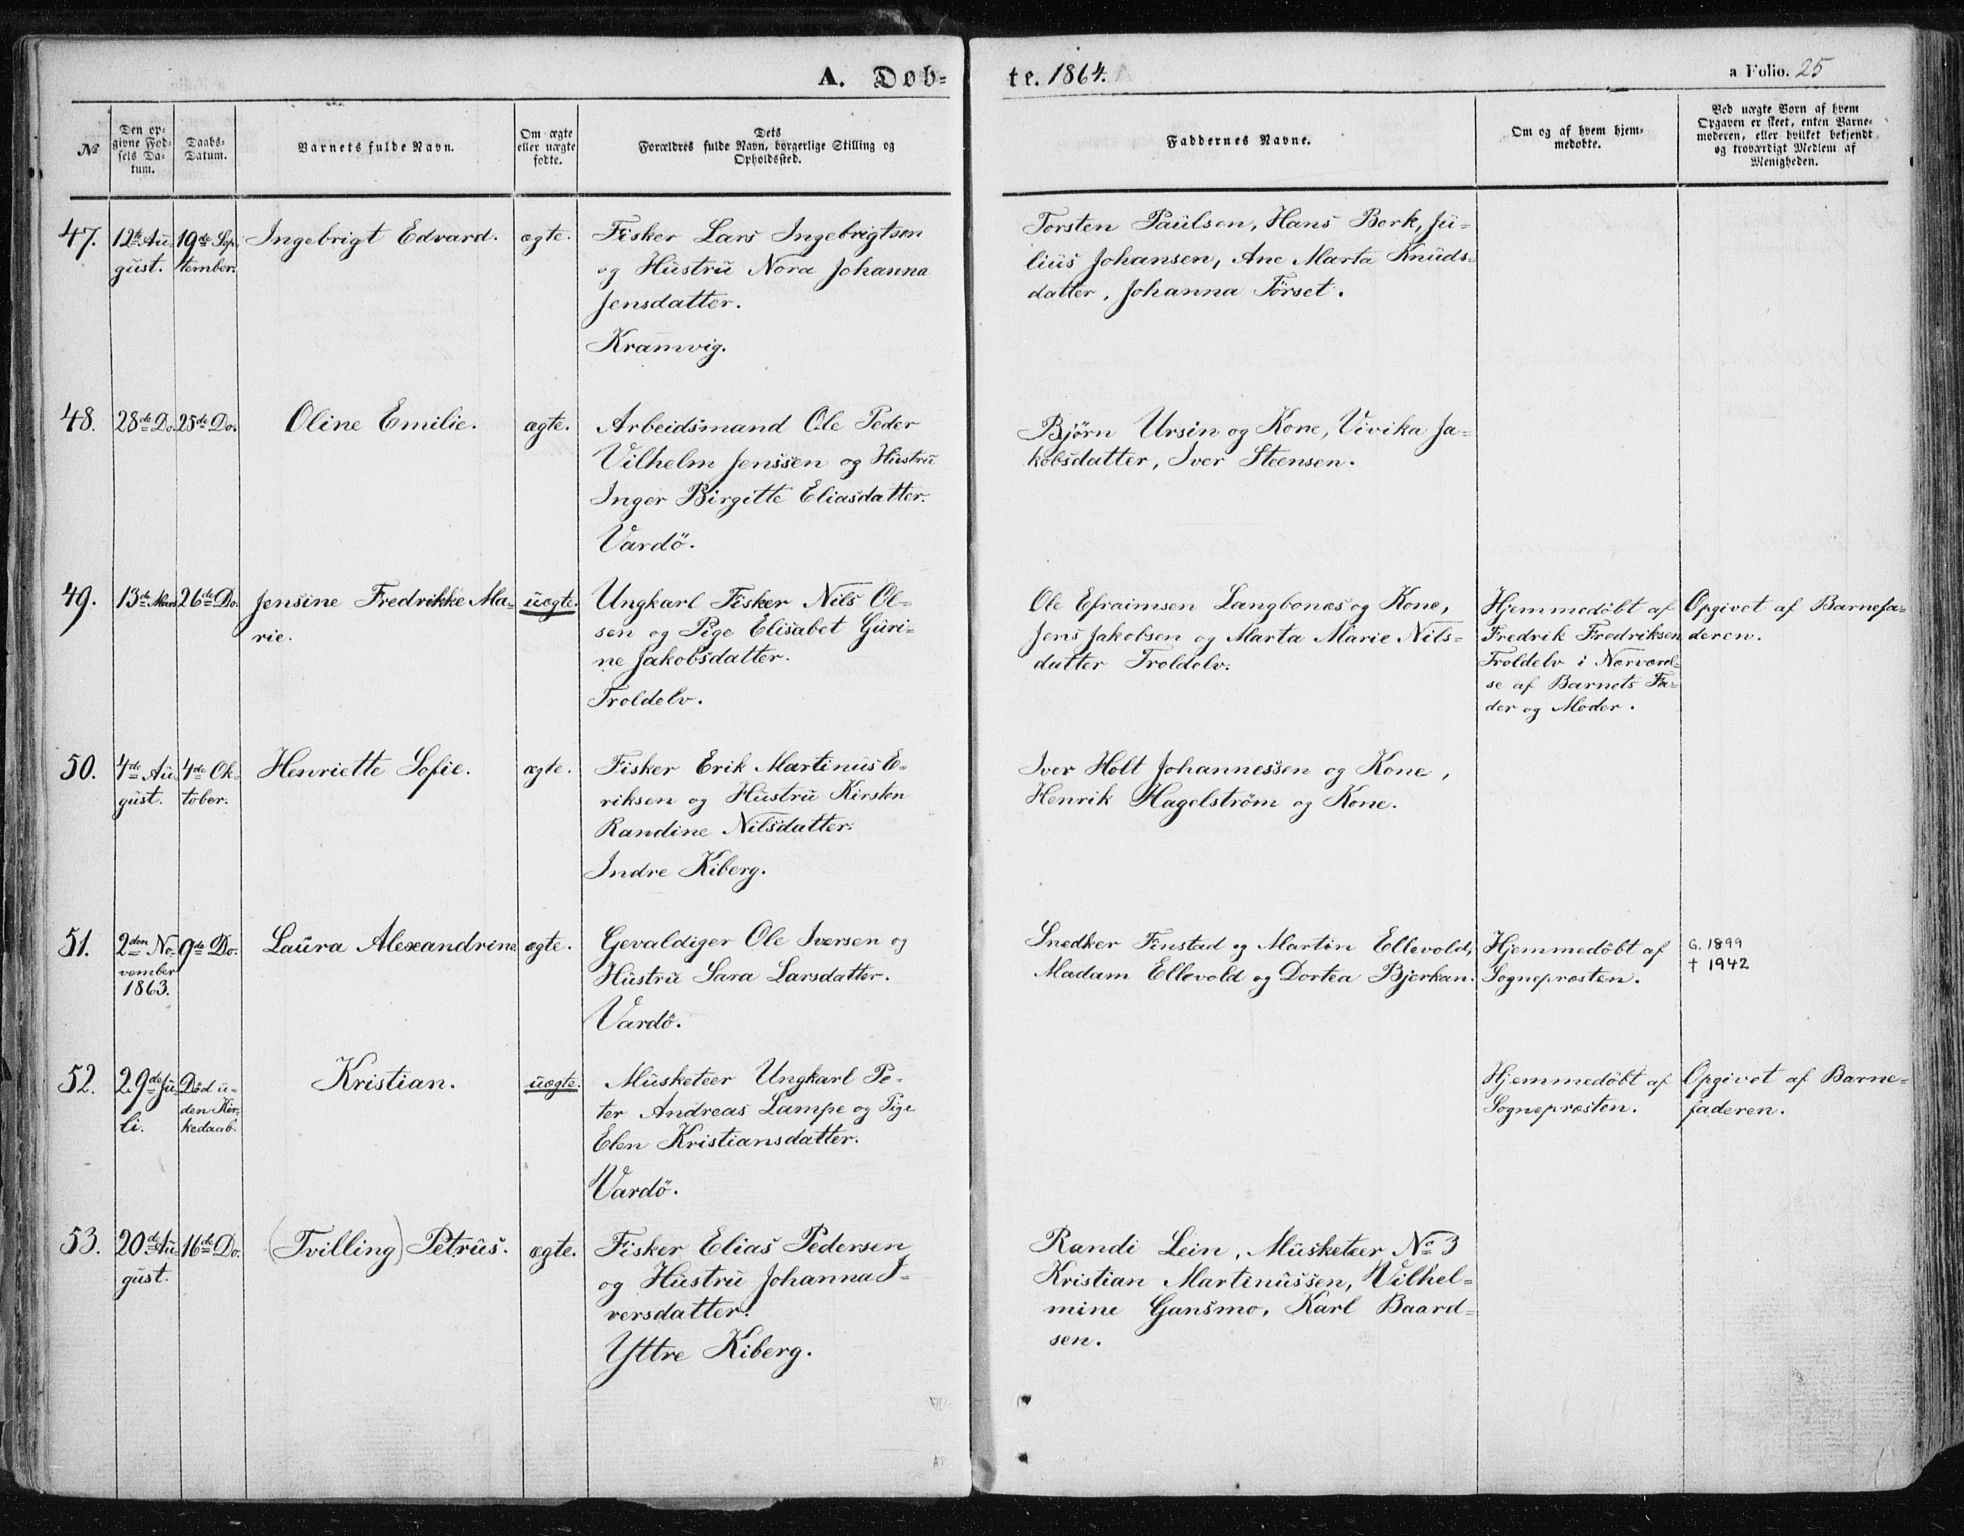 A. Døb-
te. 1864.
a Folio. 25
№
Den op-
givne Fød-
sels Da-
tum.
Daabs-
Datum.
Barnets fulde Navn.
Om ægte
eller uægte
fødte.
Dets
Forældres fulde Navn, borgerlige Stilling og
Opholdssted.
Faddernes Navne.
Om og af hvem hjem-
medøbte.
Ved uægte Børn af hvem
Opgaven er skeet, enten Barne-
moderen, eller hvilket bekjendt
og troværdigt Medlem af
Menigheden.
47.
12te Au-
gust.
19de Sep-
tember.
Ingebrigt Edvard.
ægte.
Fisker Lars Ingebrigtsen
og Hustru Nora Johanna
Jensdatter.
Kramvig.
Torsten Paulsen, Hans Bork, Ju-
lius Johansen, Ane Marta Knuds-
datter, Johanna Törset.
48.
28de Do.
25de Do.
Oline Emilie.
ægte.
Arbeidsmand Ole Peder
Vilhelm Jenssen og Hustru
Inger Birgitte Eliasdatter.
Vardö.
Bjørn Ursin og Kone, Vivika Ja-
kobsdatter, Iver Steensen.
49.
13de Mars
26de Do.
Jensine Fredrikke Ma-
rie.
uægte.
Ungkarl Fisker Nils Ol-
sen og Pige Elisabet Guri-
ne Jakobsdatter.
Troldelv.
Ole Efraimsen Langbones og Kone,
Jens Jakobsen og Marta Marie Nils-
datter Troldelv.
Hjemmedöbt af
Fredrik Fredriksen
Troldelv i Nærværel-
se af Barnets Fa-
der og Moder.
Opgivet af Barnefa-
deren.
50.
4de Au-
gust.
4de Ok-
tober.
Henriette Sofie.
ægte.
Fisker Erik Martinus E-
riksen og Hustru Kirsten
Randine Nilsdatter.
Indre Kiberg.
Iver Holt Johannessen og Kone,
Henrik Hagelström og Kone.
51.
2den No-
vember
1863.
9de Do.
Laura Alexandrine
ægte.
Gevaldiger Ole Iversen og
Hustru Sara Larsdatter.
Vardö.
Snedker Finstad og Martin Ellevold,
Madam Ellevold og Dortea Bjerkan.
Hjemmedöbt af
Sognepræsten.
G. 1899
† 1942
52.
29de Ju-
li.
Död u-
den Kir-
kedaab.
Kristian.
uægte.
Musketeer Ungkarl Pe-
ter Andreas Lampe og Pige
Elen Kristiansdatter.
Vardö.
Hjemmedöbt af
Sognepræsten.
Opgivet af Barne-
faderen.
53.
20de Au-
gust.
16de Do.
(Tvilling) Petrus.
ægte.
Fisker Elias Pedersen
og Hustru Johanna I-
versdatter.
Yttre Kiberg.
Randi Lein, Musketeer No 3
Kristian Martinussen, Vilhel-
mine Gansmo, Karl Baard-
sen.